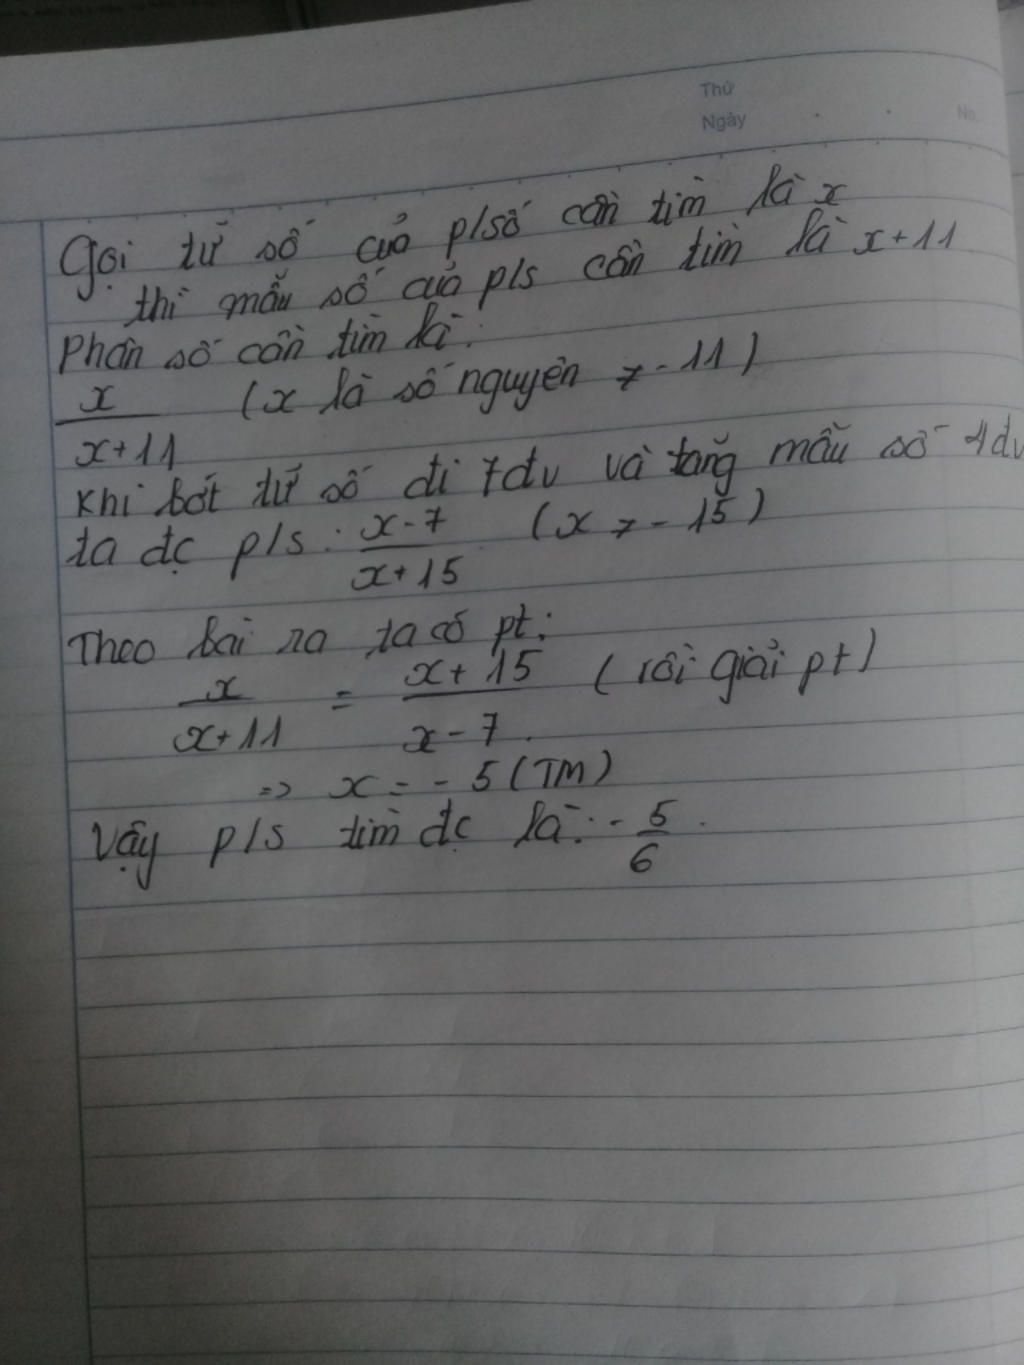 Thứ
Ngày
No.
Gọi tử số của p/số cần tìm là x
thì mẫu số của p/s cần tìm là x+11
Phân số cần tìm là:
x/x+11 (x là số nguyên ≠ -11)
Khi bớt tử số đi 7đv và tăng mẫu số 4đv
ta đc p/s: x-7/x+15 (x ≠ -15)
Theo bài ra ta có pt:
x/x+11 = x+15/x-7 (rồi giải pt)
=> x = -5 (TM)
Vậy p/s tìm đc là: -5/6.